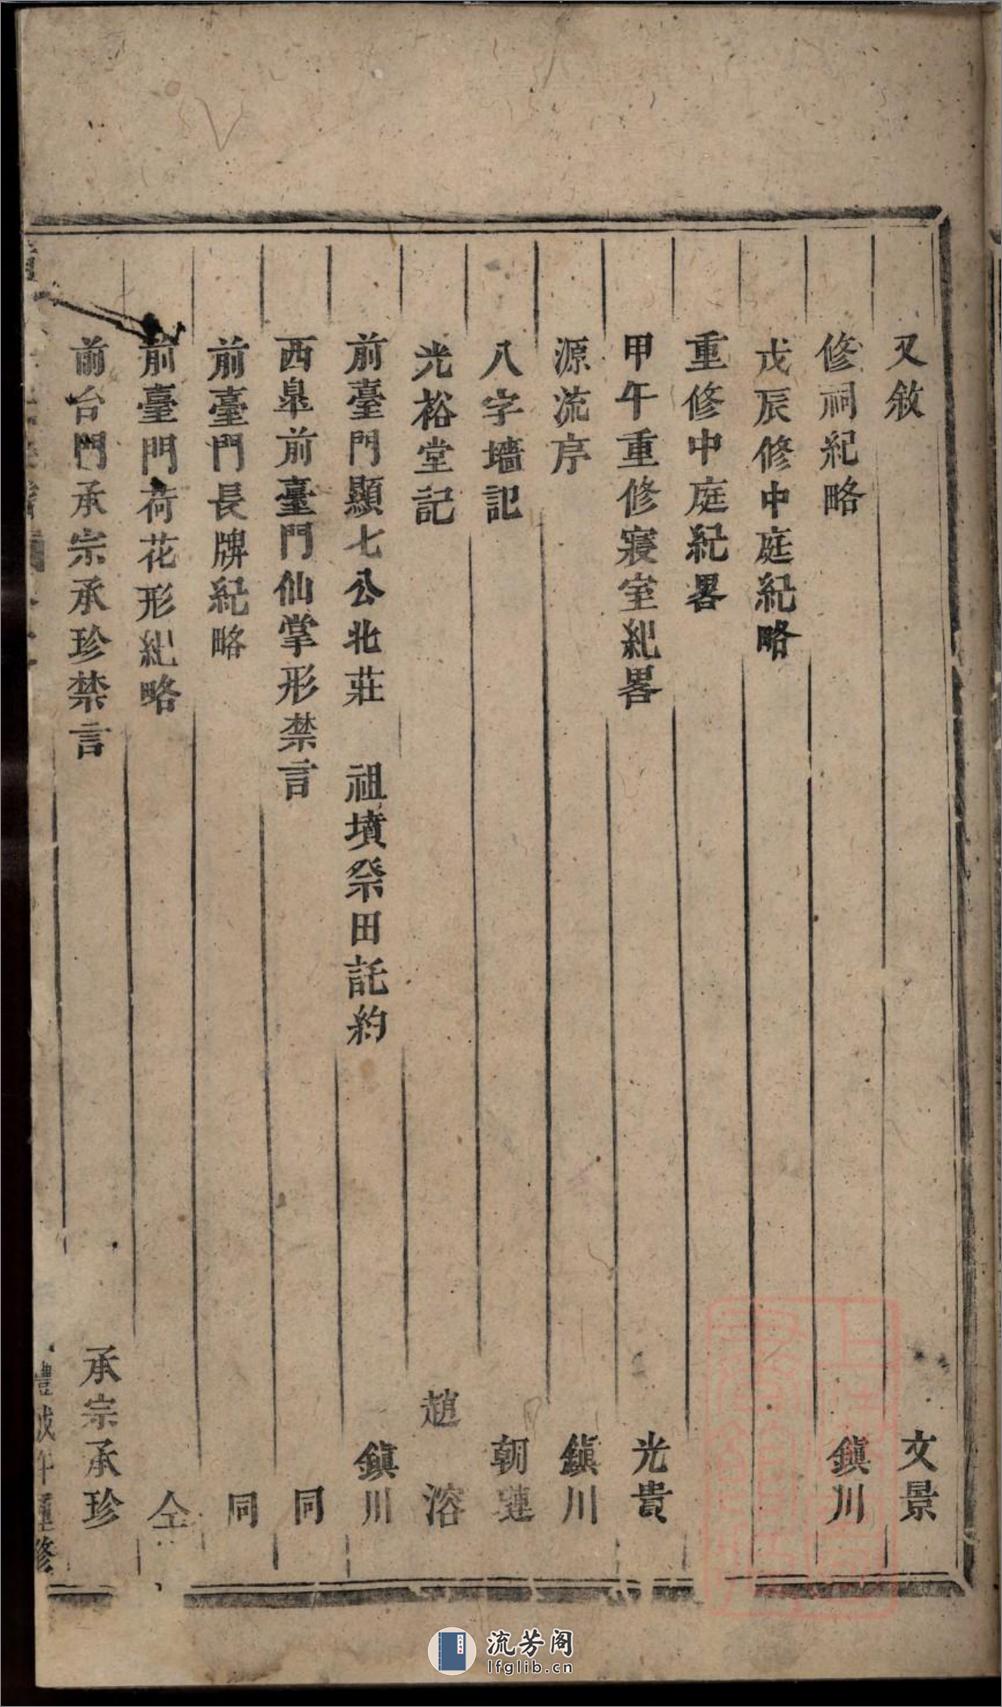 又敘 文景
修祠紀略 鎮川
戊辰修中庭紀略
重修中庭紀畧
甲午重修寢室紀畧 光貴
源流序 鎮川
八字墻記 朝璉
光裕堂記 趙溶
前臺門顯七公北莊 祖墳祭田託約 鎮川
西臯前臺門仙掌形禁言 同
前臺門長牌紀略 同
前臺門荷花形紀略 仝
前台門承宗承珍禁言 承宗承珍
年重修
流芳阁
lfglib.cn